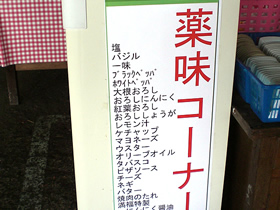 薬味コーナー
塩
バジル
一味
ﾌﾞﾗｯｸﾍﾟｯﾊﾟ
ﾎﾜｲﾄﾍﾟｯﾊﾟ
大根おろし
おろしにんにく
紅葉おろし
おろししょうが
レモン汁
ケチャップ
マヨネーズ
ウスター
オリーブオイル
タバスコ
ピザソース
チーズ
ネギ
バター
焼肉のたれ
満福特製
にんにく醤油